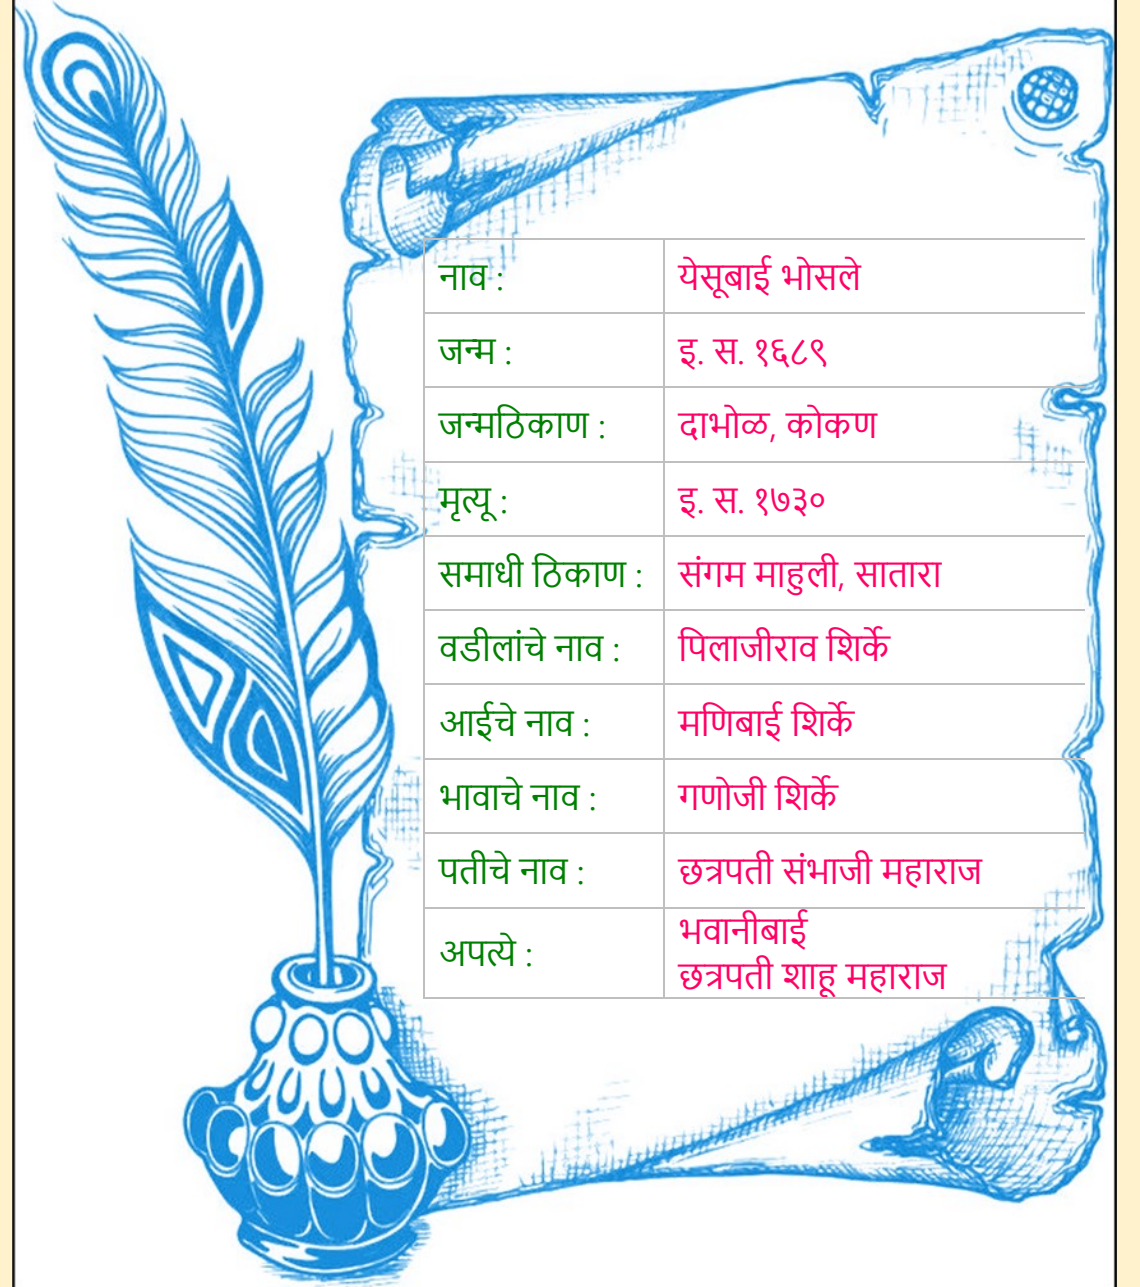 नाव : येसूबाई भोसले
जन्म : इ. स. १६८९
जन्मठिकाण : दाभोळ, कोकण
मृत्यू : इ. स. १७३०
समाधी ठिकाण : संगम माहुली, सातारा
वडीलांचे नाव : पिलाजीराव शिर्के
आईचे नाव : मणिबाई शिर्के
भावाचे नाव : गणोजी शिर्के
पतीचे नाव : छत्रपती संभाजी महाराज
अपत्ये : भवानीबाई
छत्रपती शाहू महाराज